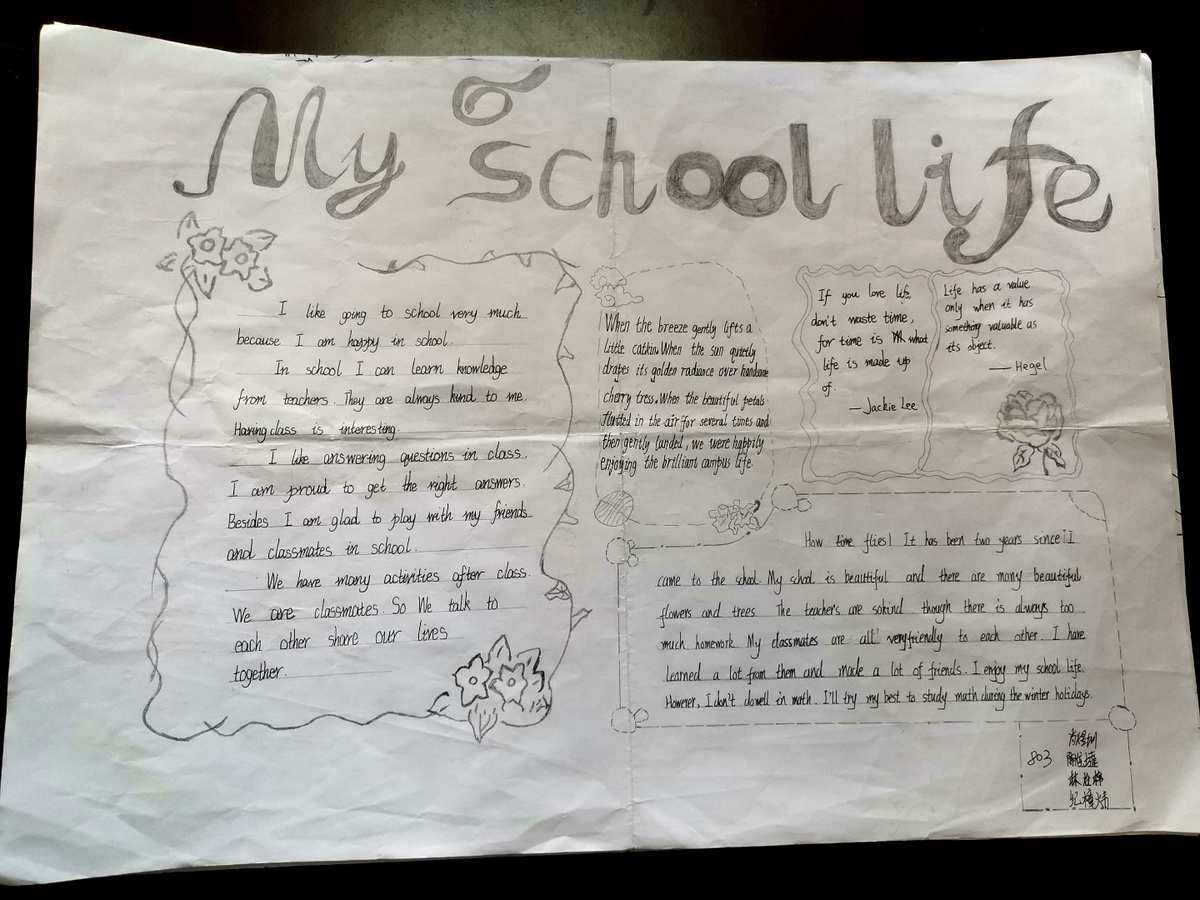 My School life
I like going to school very much
because I am happy in school.
In school I can learn knowledge
from teachers. They are always kind to me.
Having class is interesting.
I like answering questions in class.
I am proud to get the right answers.
Besides I am glad to play with my friends
and classmates in school.
We have many activities after class.
We are classmates. So We talk to
each other share our lives
together.
When the breeze gently lifts a
little catkin. When the sun quietly
drapes its golden radiance over handsome
cherry tress. When the beautiful petals
flutted in the air for several times and
then gently landed, we were happily
enjoying the brilliant campus life.
If you love life,
don't waste time,
for time is what
life is made up
of.
— Jackie Lee
Life has a value
only when it has
something valuable as
its object.
— Hegel
How time flies! It has been two years since I
came to the school. My school is beautiful and there are many beautiful
flowers and trees. The teachers are sokind though there is always too
much homework. My classmates are all veryfriendly to each other. I have
learned a lot from them and made a lot of friends. I enjoy my school life.
However, I don't dowell in math. I'll try my best to study math during the winter holidays.
803